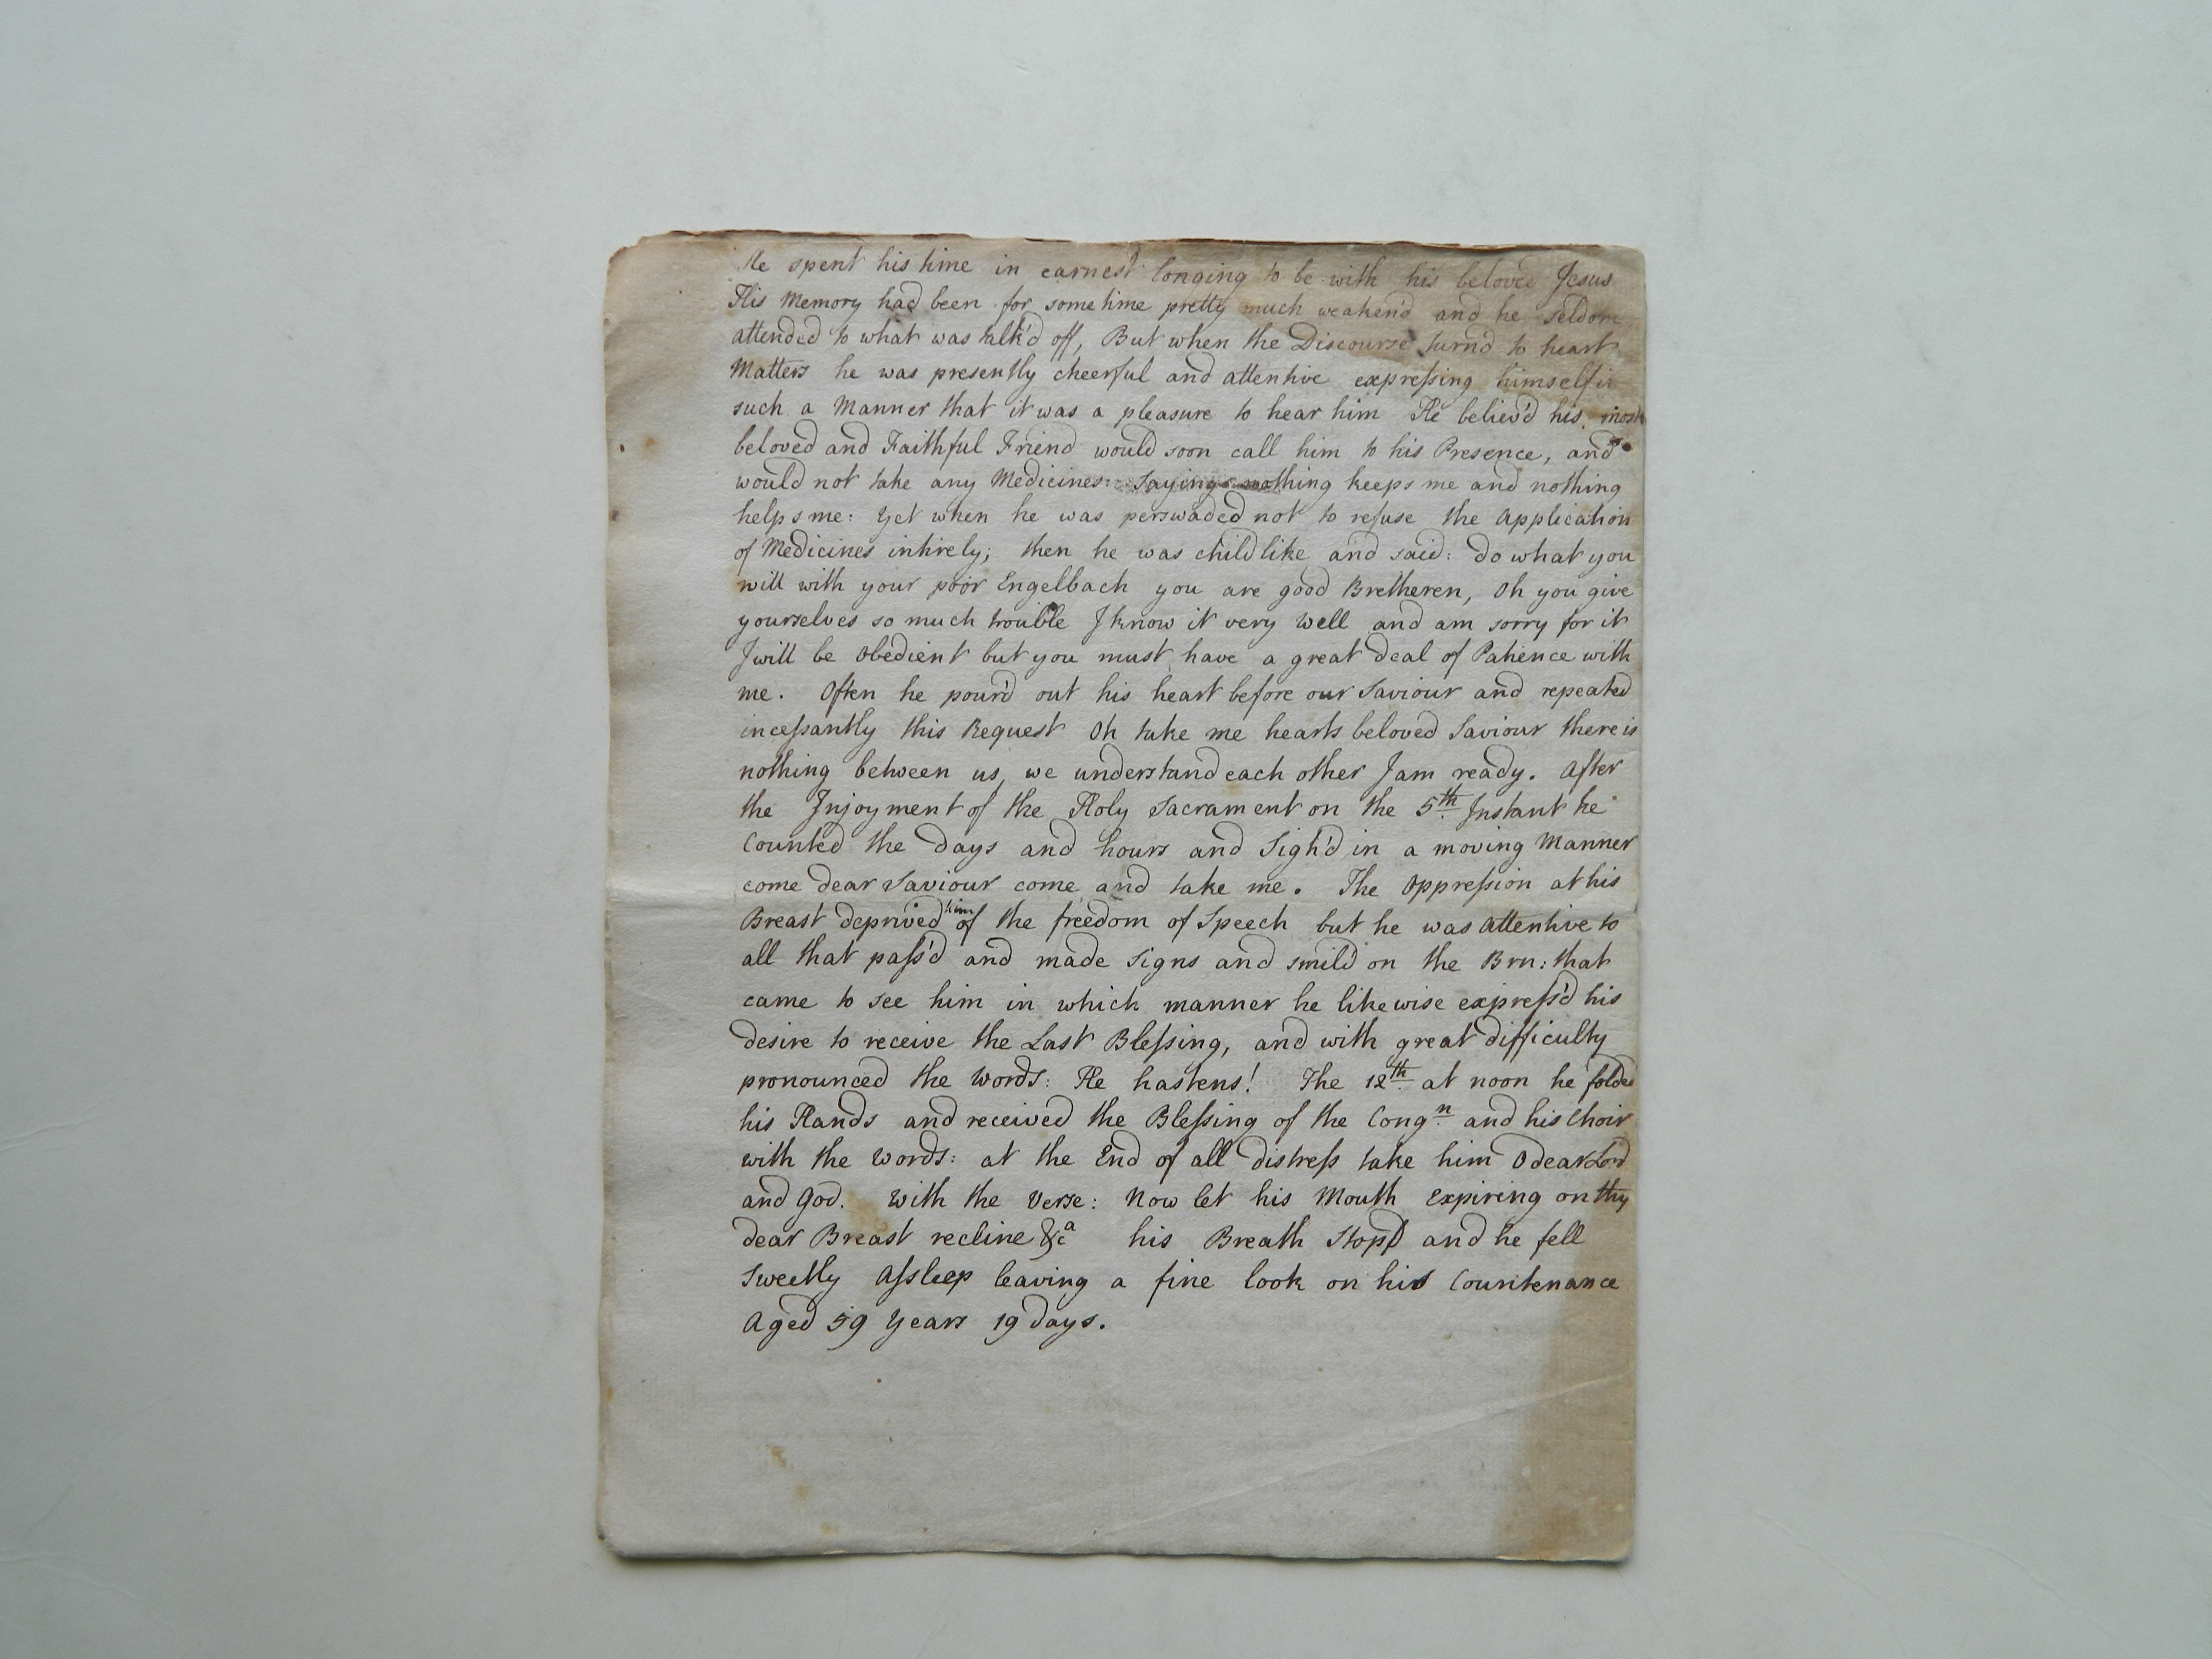 He spent his time in earnest longing to be with his beloved Jesus
His Memory had been for some time pretty much weaken'd and he seldom
attended to what was talk'd off, But when the Discourse turn'd to heart
Matters he was presently cheerful and attentive expreſsing himself in
such a Manner that it was a pleasure to hear him He believ'd his most
beloved and Faithful Friend would soon call him to his Presence, and
would not take any Medicines: Saying nothing keeps me and nothing
helps me: Yet when he was perswaded not to refuse the Application
of Medicines intirely; then he was childlike and said: do what you
will with your poor Engelbach you are good Bretheren, Oh you give
yourselves so much trouble I know it very well and am sorry for it
I will be Obedient but you must have a great deal of Patience with
me. Often he pour'd out his heart before our Saviour and repeated
inceſsantly this Request Oh take me hearts beloved Saviour there is
nothing between us, we understand each other I am ready. After
the Injoyment of the Holy Sacrament on the 5th Instant he
Counted the days and hours and Sigh'd in a moving Manner
come dear Saviour come and take me. The Oppreſsion at his
Breast deprived him of the freedom of Speech but he was Attentive to
all that paſs'd and made signs and smil'd on the Brn: that
came to see him in which manner he likewise expreſs'd his
desire to receive the Last Bleſsing, and with great difficulty
pronounced the Words: He hastens! The 12th at noon he folded
his Hands and received the Bleſsing of the Congn. and his Choir
with the Words: at the End of all distreſs take him O dear Lord
and God. With the Verse: Now let his Mouth Expiring on thy
dear Breast recline &ca his Breath Stop'd and he fell
Sweetly Aſsleep leaving a fine look on his Countenance
Aged 59 Years 19 days.